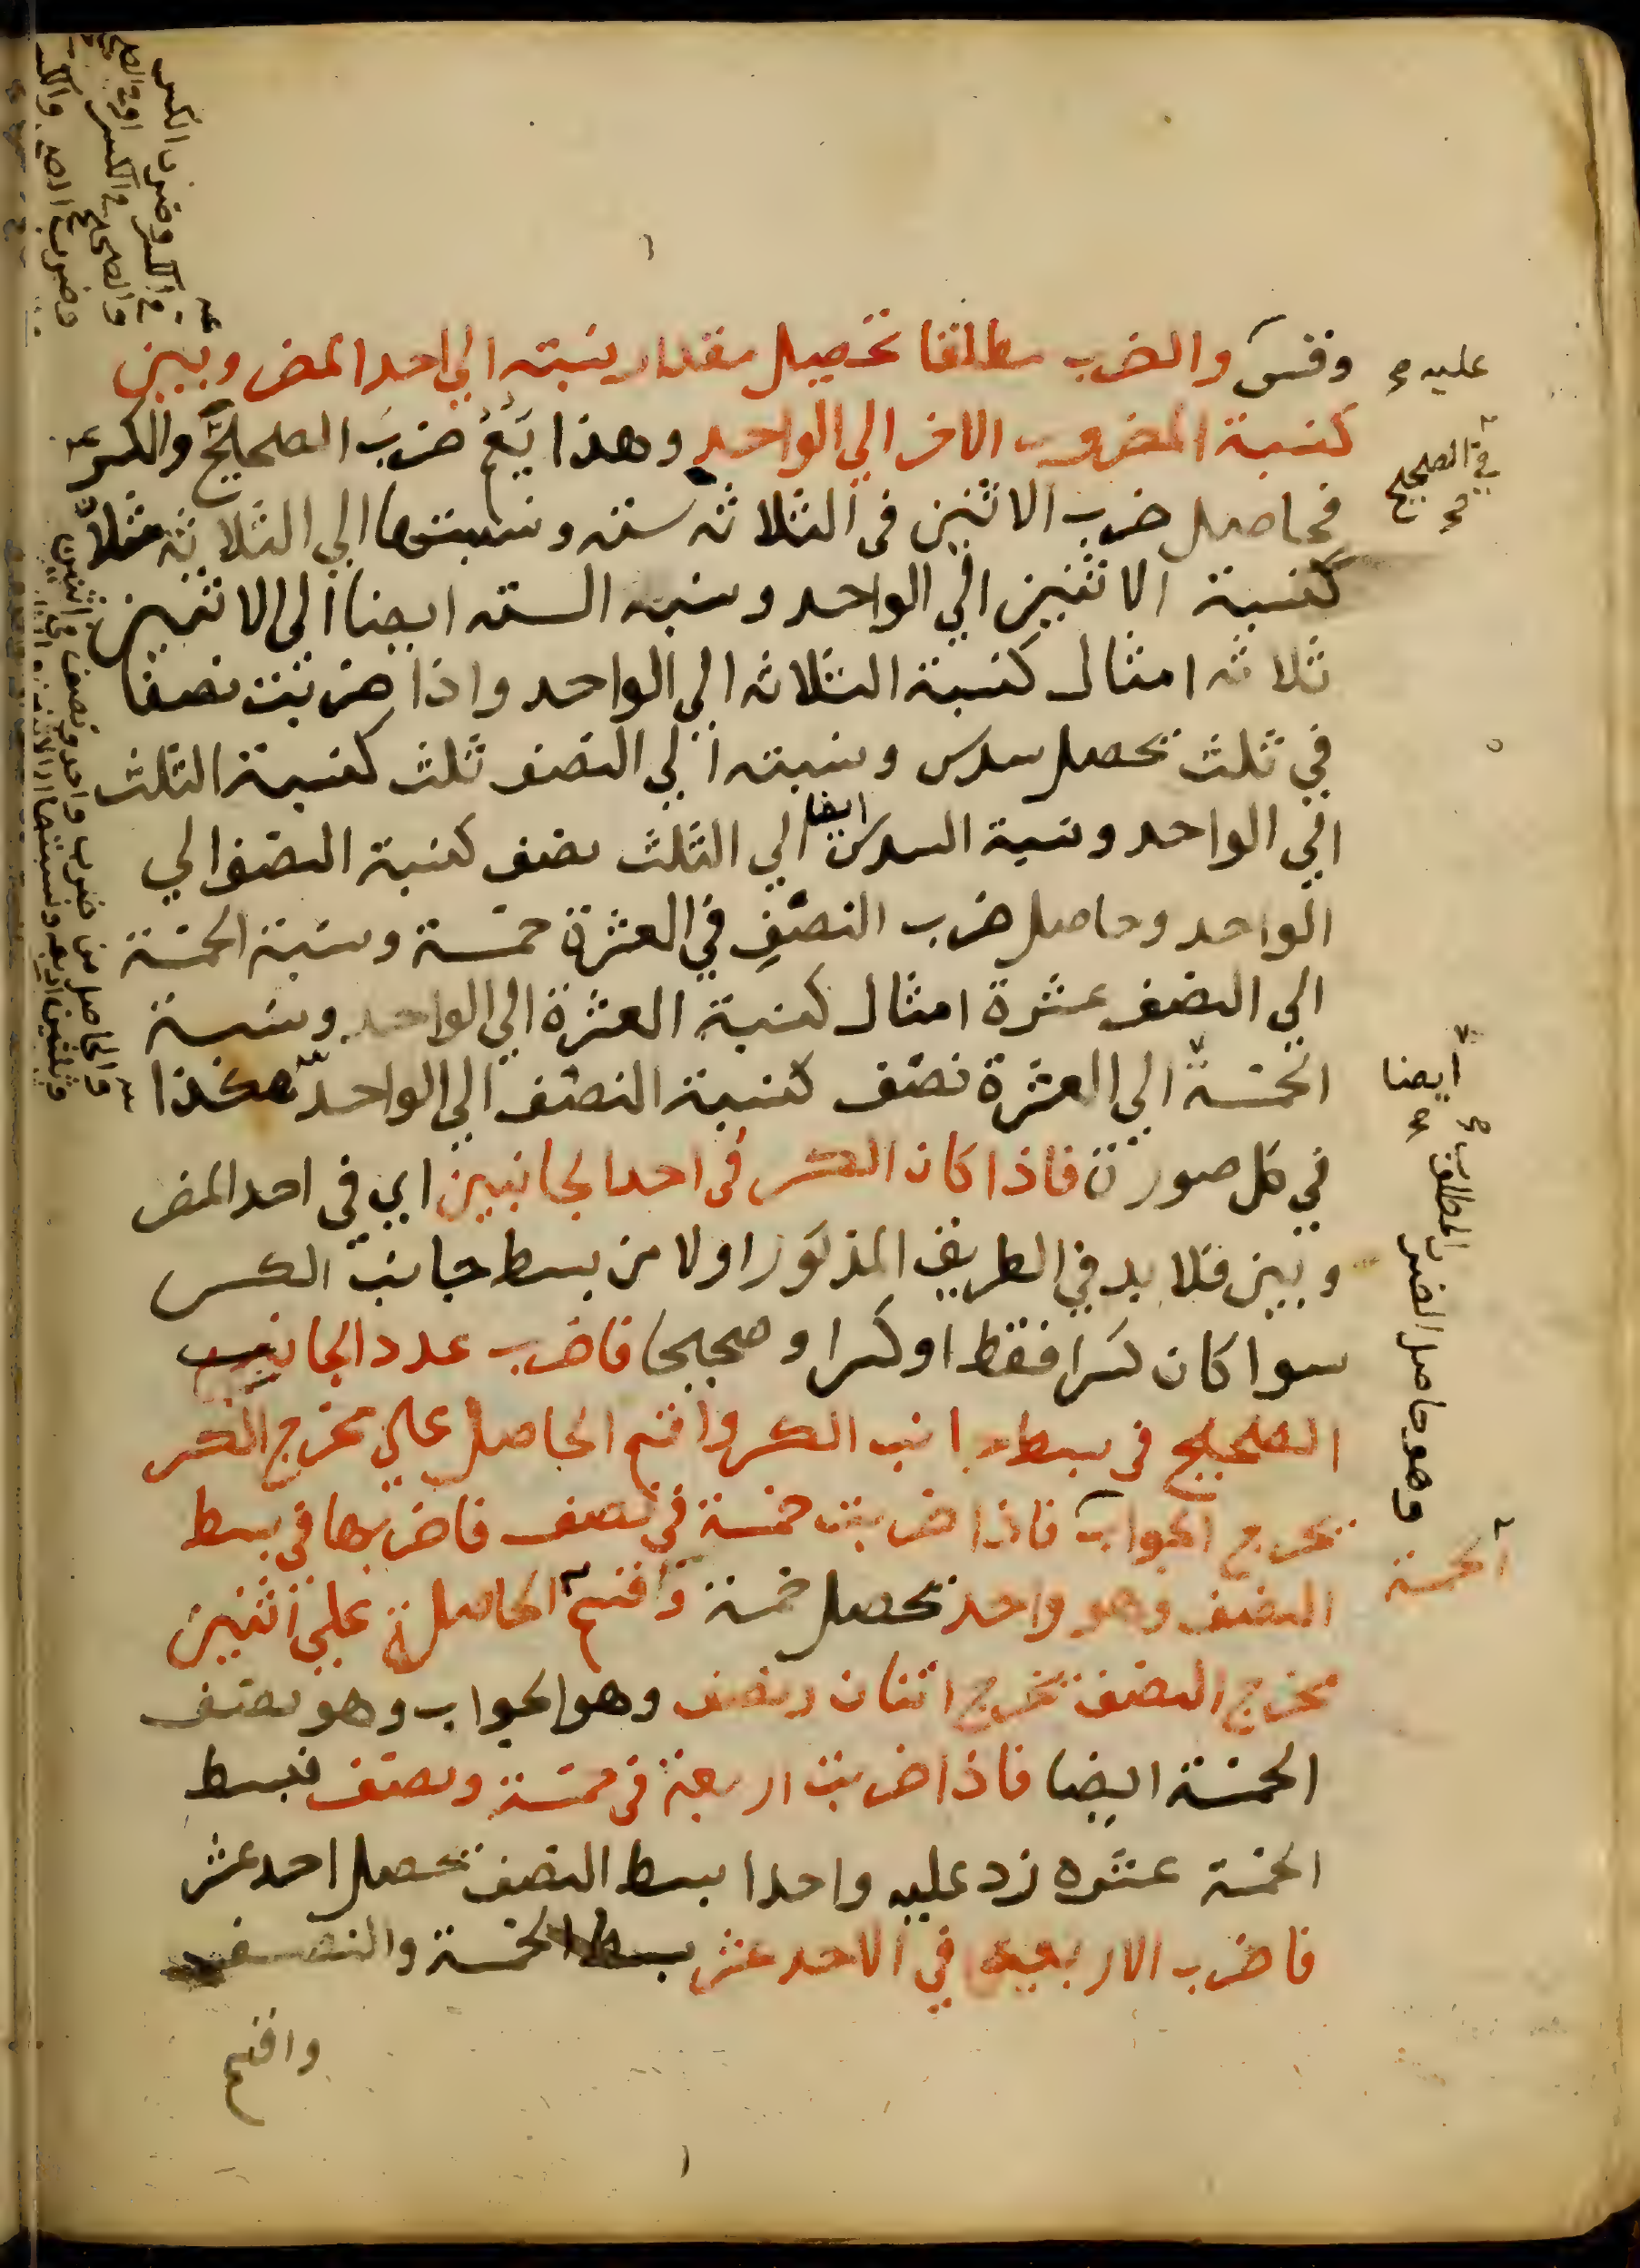 وقس والضرب مطلقا تحصيل مقدار نسبته الي احد المضروبين
عليه
كنسبة المضروب الاخر الي الواحد وهذا يعم ضرب الصحيح والكسر
في الصحيح
فحاصل ضرب الاثنين في الثلاثه سته ونسبتها الي الثلاثه مثلا
كنسبة الاثنين الي الواحد ونسبه السته ايضا الي الاثنين
ثلاثه امثال كنسبة الثلاثه الي الواحد واذا ضربت نصفا
في ثلث تحصل سدس ونسبته الي النصف ثلث كنسبة الثلث
الي الواحد ونسبة السدس ايضا الي الثلث نصف كنسبة النصف الي
الواحد وحاصل ضرب النصف في العشرة خمسة ونسبة الخمسة
الي النصف عشرة امثال كنسبة العشرة الي الواحد ونسبة
الخمسة الي العشرة نصف كنسبة النصف الي الواحد هكذا
ايضا
في كل صورة فاذا كان الكسر في احد الجانبين اي في احد المضر
وبين فلا بد في الطريق المذكور اولا من بسط جانب الكسر
سوا كان كسرا فقط او كسرا وصحيحا فاضرب عدد الجانب
الصحيح في بسط جانب الكسر واقسم الحاصل علي مخرج الكسر
يخرج الجواب فاذا ضربت خمسة في نصف فاضربها في بسط
وهو حاصل الضرب المطلوب
الخمسة
النصف وهو واحد تحصل خمسة واقسم الحاصلة علي اثنين
مخرج النصف يخرج اثنان ونصف وهو الجواب وهو نصف
الخمسة ايضا فاذا ضربت اربعة في خمسة ونصف فبسط
الخمسة عشره زد عليه واحدا بسط النصف تحصل احد عشر
فاضرب الاربعه في الاحد عشر بسط الخمسة والنصف
واقسم
والحاصل من ضرب واحد ونصف في اثنين